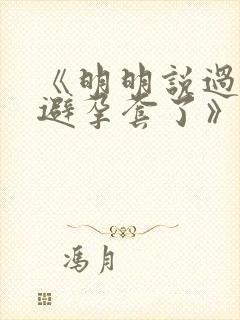 《明明說過
避孕套了》
馮月